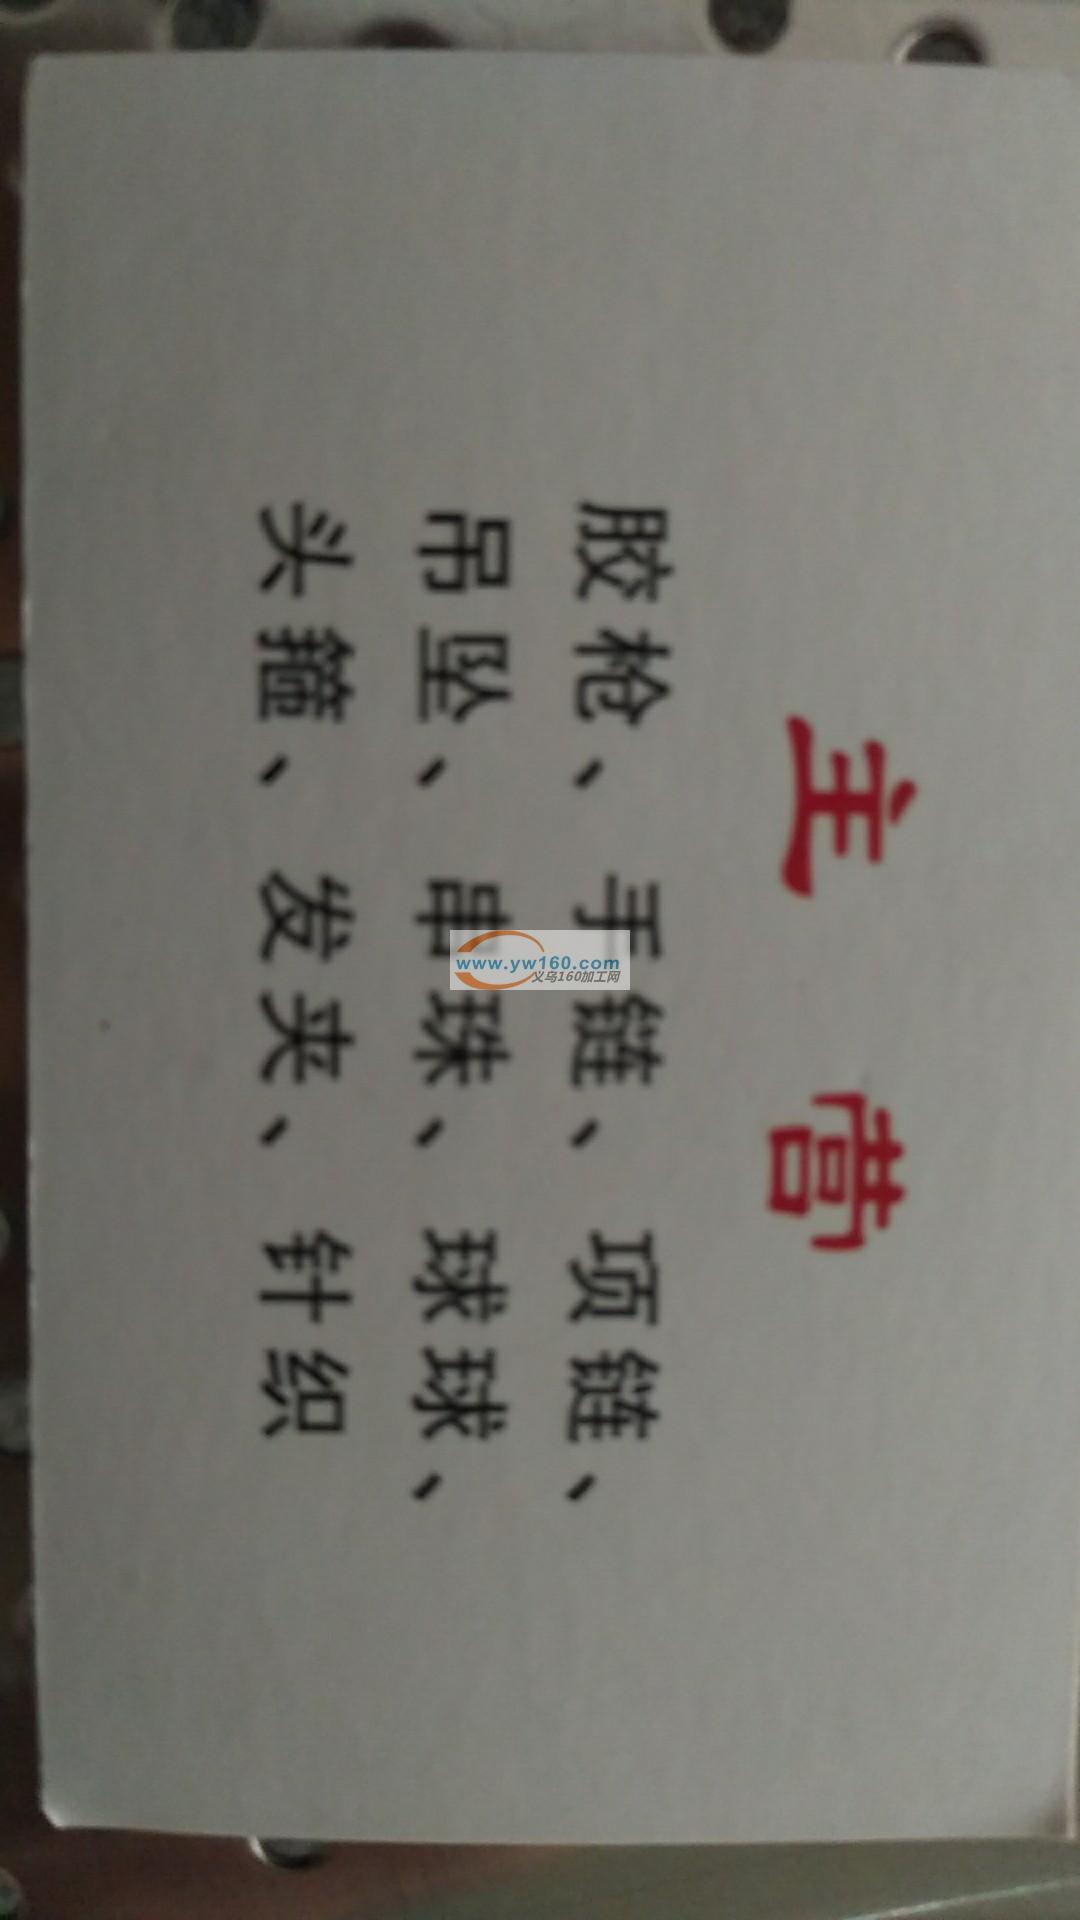 主 营
胶枪、手链、项链、
吊坠、串珠、球球、
头箍、发夹、针织
www.yw160.com
义乌160加工网